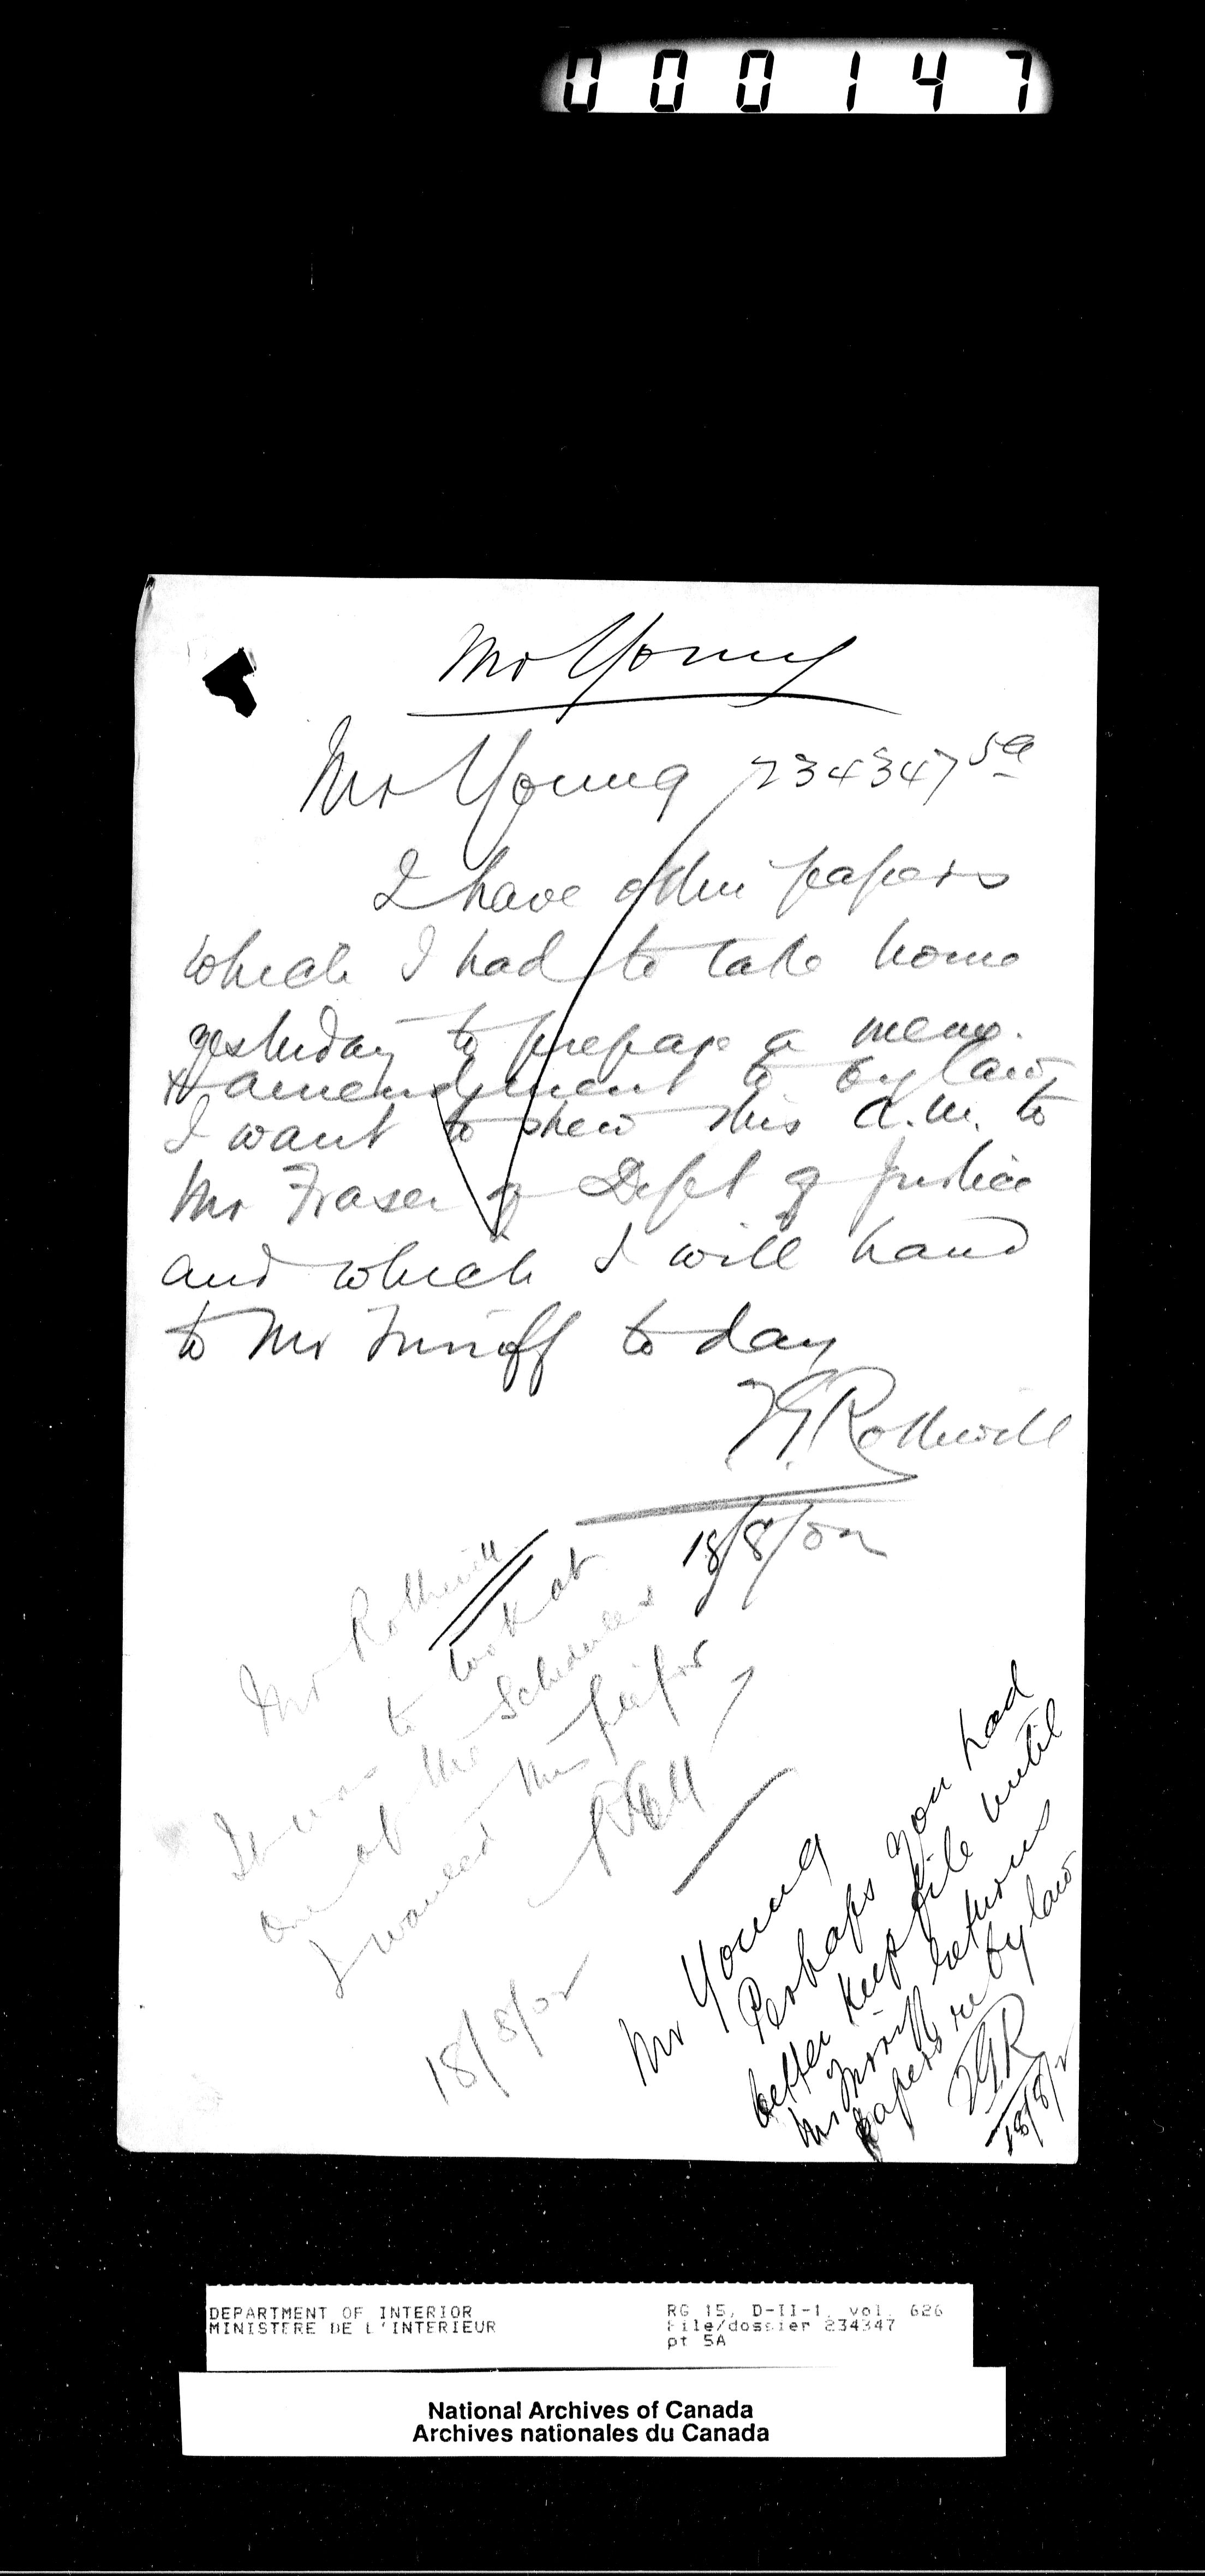 000147
Mr Young
Mr Young 234347 5a
I have other papers
which I had to take home
yesterday to prepare a memo.
& amendment to by law
I want to shew this a.m. to
Mr Fraser of Dept of Justice
and which I will hand
to Mr Turriff to day
T.G. Rothwell
18/8/02
Mr Rothwell
It was to look at
one of the schedules
I wanted this file for
18/8/02
Mr Young
Perhaps you had
better keep file until
Mr Turriff returns
papers re by law
TGR
18/8/2
DEPARTMENT OF INTERIOR
MINISTERE DE L'INTERIEUR
RG 15, D-II-1, vol. 626
File/dossier 234347
pt 5A
National Archives of Canada
Archives nationales du Canada